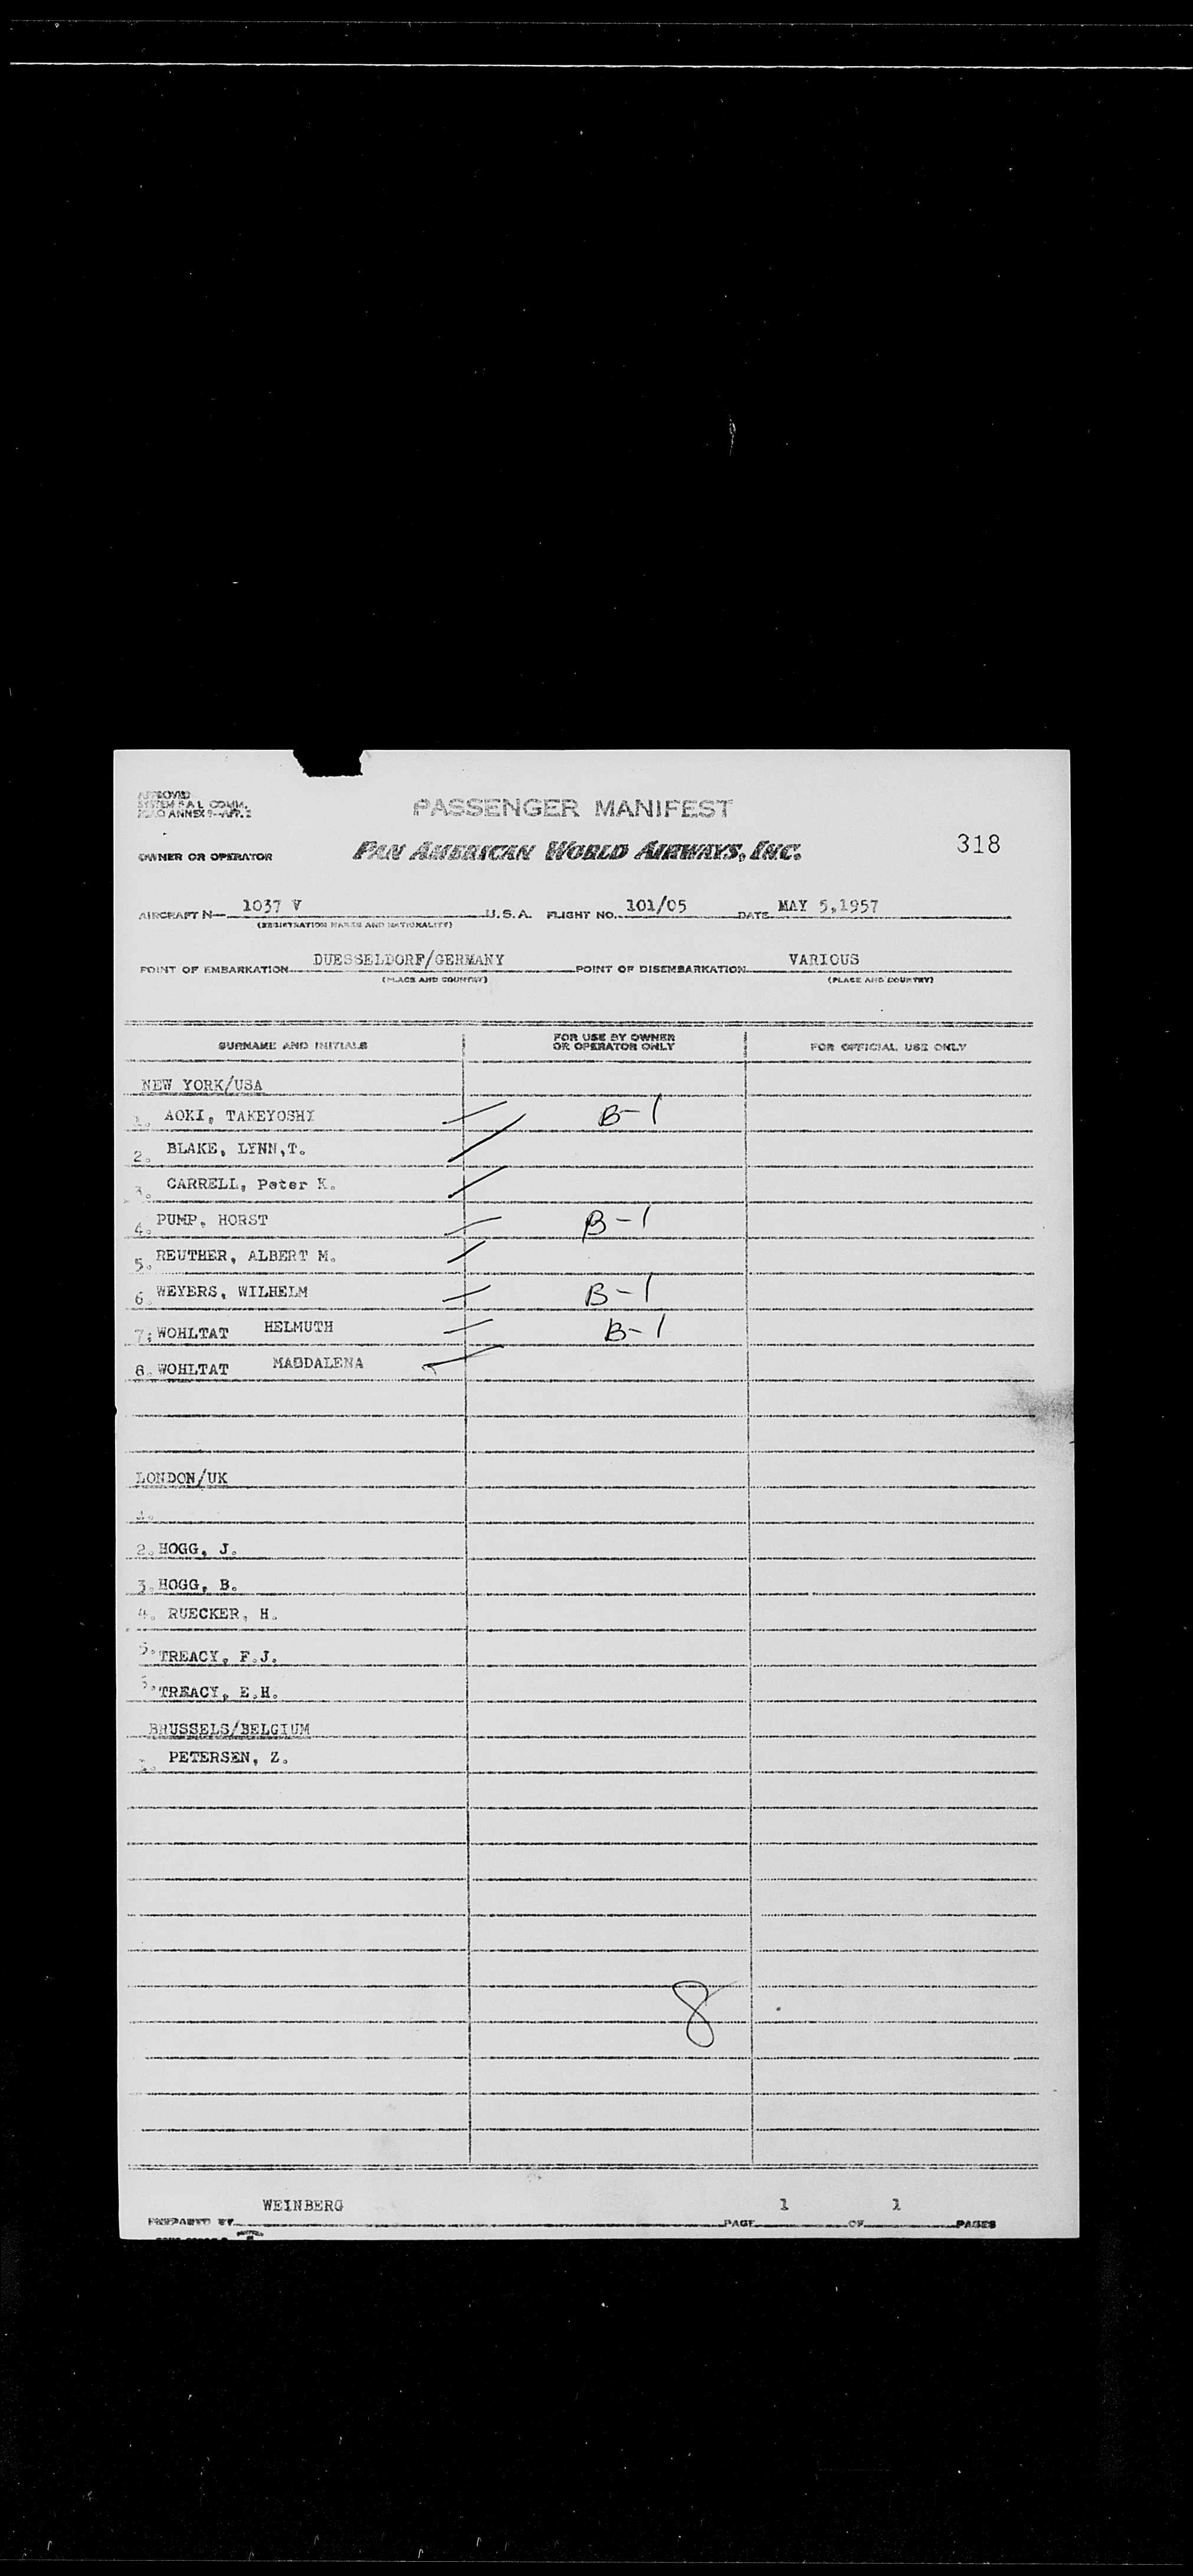 APPROVED
SYSTEM P.A.L. COMM.
ICAO ANNEX 9-APP. 2
PASSENGER MANIFEST
318
OWNER OR OPERATOR PAN AMERICAN WORLD AIRWAYS, INC.
AIRCRAFT N— 1037 V U.S.A. FLIGHT NO. 101/05 DATE MAY 5,1957
(REGISTRATION MARKS AND NATIONALITY)
POINT OF EMBARKATION DUESSELDORF/GERMANY POINT OF DISEMBARKATION VARIOUS
(PLACE AND COUNTRY) (PLACE AND COUNTRY)
SURNAME AND INITIALS FOR USE BY OWNER OR OPERATOR ONLY FOR OFFICIAL USE ONLY
NEW YORK/USA
1. AOKI, TAKEYOSHI B-1
2. BLAKE, LYNN,T.
3. CARRELL, Peter K.
4. PUMP, HORST B-1
5. REUTHER, ALBERT M.
6. WEYERS, WILHELM B-1
7. WOHLTAT HELMUTH B-1
8. WOHLTAT MAGDALENA
LONDON/UK
1.
2. HOGG, J.
3. HOGG, B.
4. RUECKER, H.
5. TREACY, F.J.
TREACY, E.H.
BRUSSELS/BELGIUM
1. PETERSEN, Z.
8
PREPARED BY WEINBERG PAGE 1 OF 1 PAGES